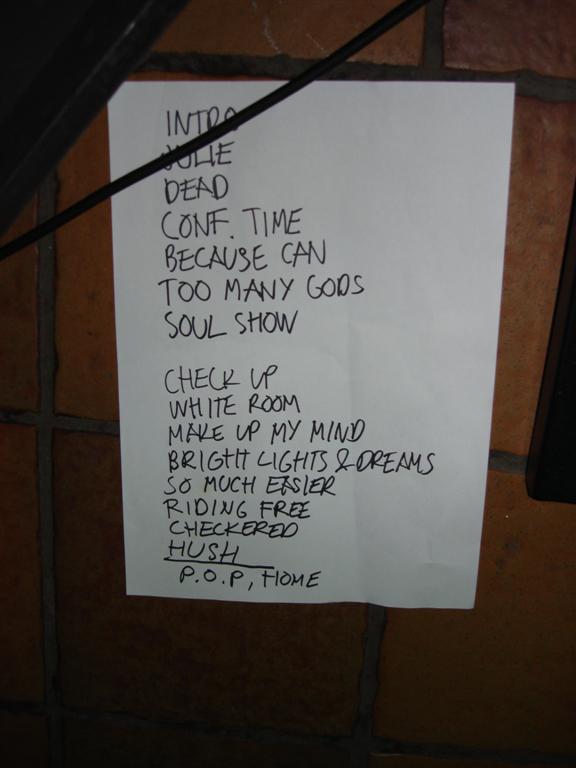 INTRO
JULIE
DEAD
CONF. TIME
BECAUSE CAN
TOO MANY GODS
SOUL SHOW
CHECK UP
WHITE ROOM
MAKE UP MY MIND
BRIGHT LIGHTS & DREAMS
SO MUCH EASIER
RIDING FREE
CHECKERED
HUSH
P.O.P, HOME